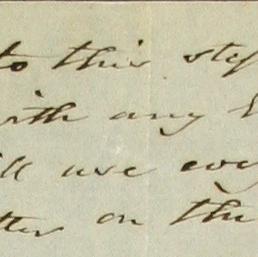 to this step
with any
ll use every
tter on the